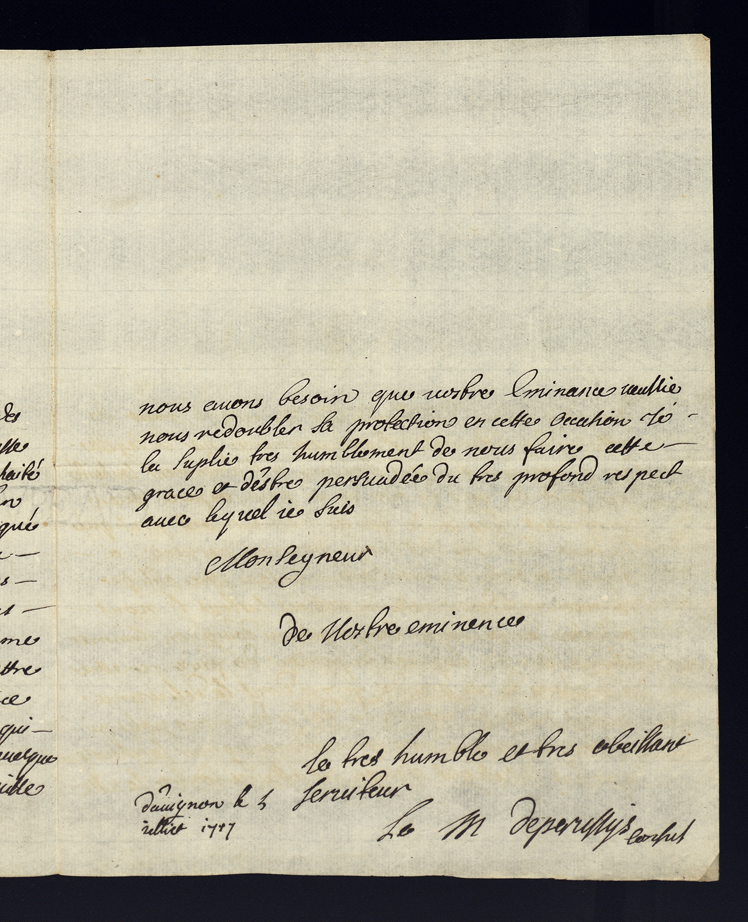 des
haité
qué
me
ttre
ce
qui —
quelque
nous auons besoin que uostre Eminance ueullie
nous redoubler sa protection en cette occation Je -
la suplie tres humblement de nous faire cette —
grace et dêstre persuadée du tres profond respect
auec lequel ie suis
Monseyneur
de Uostre eminence
le tres humble et tres obeissant
seruiteur
dâuignon le
1717
Le M deperussys